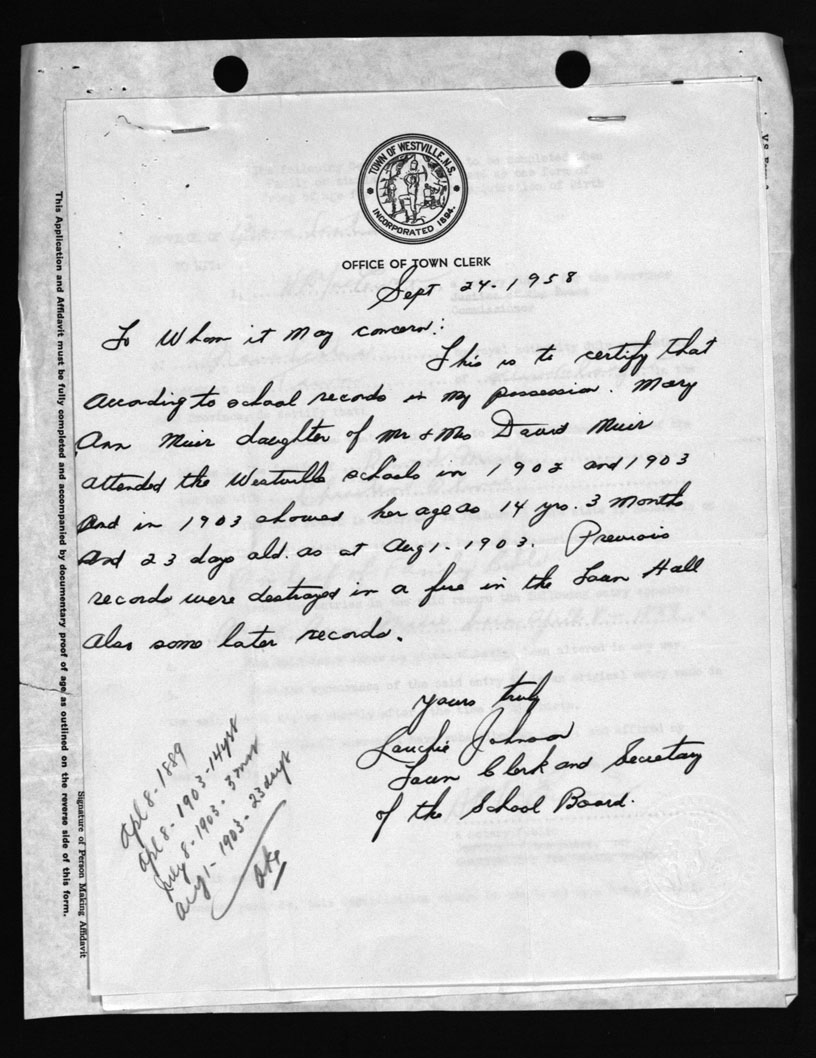 TOWN OF WESTVILLE, N.S.
INCORPORATED 1894.
OFFICE OF TOWN CLERK
Sept 24-1958
To Whom it May concern:
This is to certify that
According to school records in my possession. Mary
Ann Muir daughter of Mr & Mrs David Muir
attended the Westville schools in 1902 and 1903
And in 1903 showed her age as 14 yrs. 3 Months
And 23 days old. as at Aug 1-1903. Previous
records were destroyed in a fire in the Town Hall
Also some later records.
yours truly
Lauchie Johnson
Town Clerk and Secretary
of the School Board.
Apl 8-1889
Apl 8-1903-14yrs
July 8-1903-3 mos
Aug 1-1903-23 days
This Application and Affidavit must be fully completed and accompanied by documentary proof of age as outlined on the reverse side of this form.
Signature of Person Making Affidavit